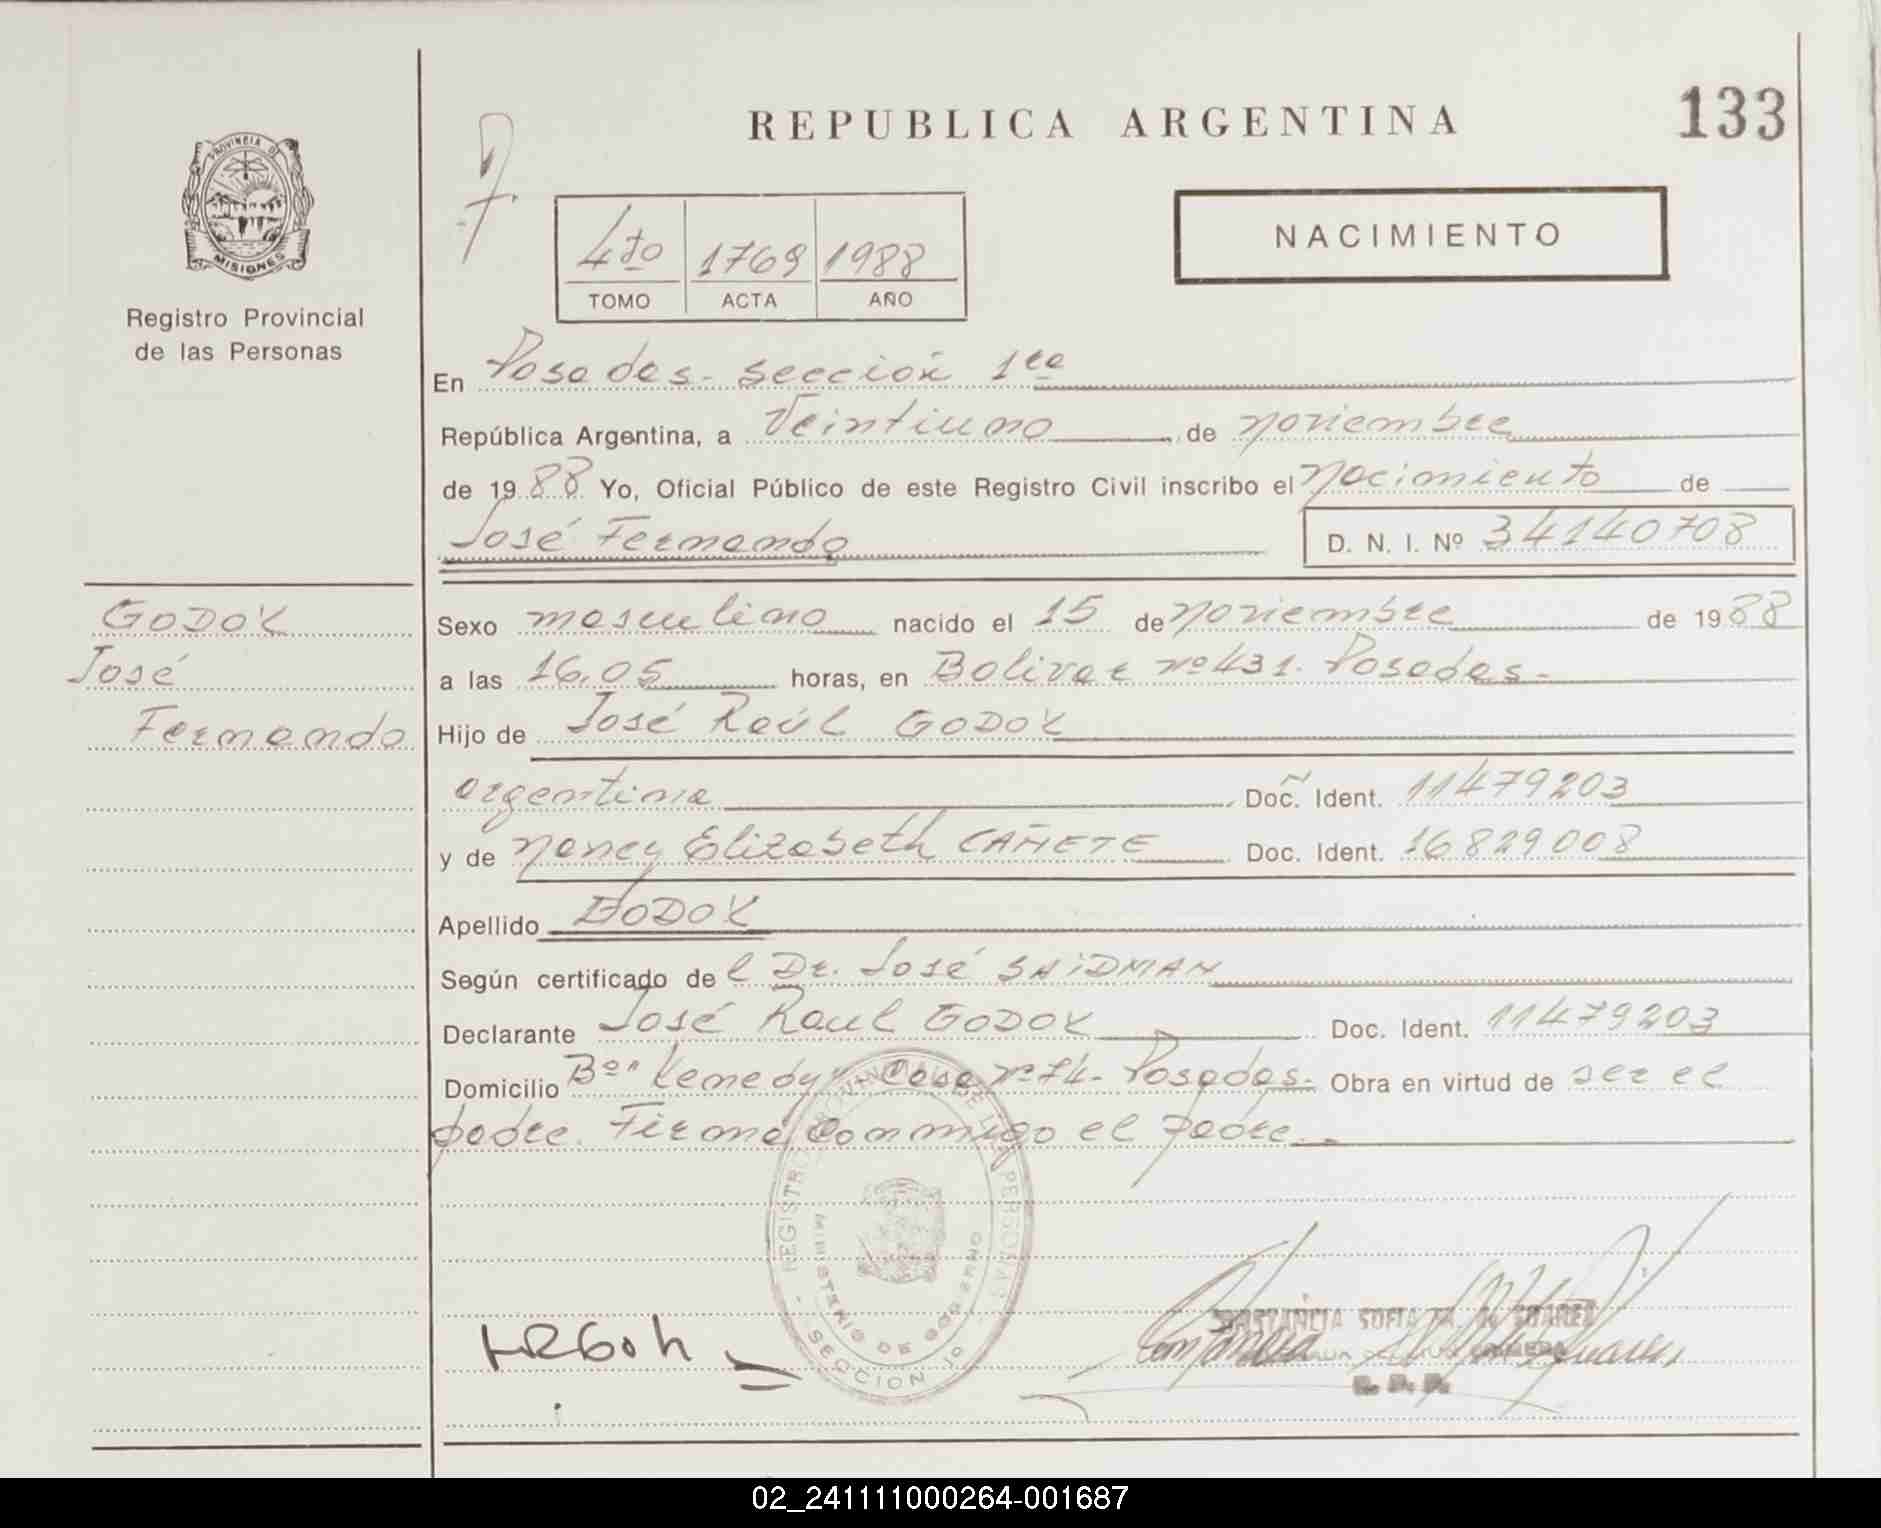 REPUBLICA ARGENTINA
133
PROVINCIA DE
MISIONES
Registro Provincial
de las Personas
4to 1769 1988
TOMO ACTA AÑO
NACIMIENTO
En Posadas - Sección 1ra
República Argentina, a Veintiuno de noviembre
de 1988 Yo, Oficial Público de este Registro Civil inscribo el Nacimiento de
José Fernando
D. N. I. Nº 34140708
GODOY
José
Fernando
Sexo masculino nacido el 15 de noviembre de 1988
a las 16,05 horas, en Bolivar nº 431. Posadas.-
Hijo de José Raúl GODOY
argentina Doc. Ident. 11479203
y de Nancy Elizabeth CAÑETE Doc. Ident. 16829008
Apellido GODOY
Según certificado del Dr. José SAIDMAN
Declarante José Raul GODOY Doc. Ident. 11479203
Domicilio Bº "Kenedy" Casa nº 74- Posadas.- Obra en virtud de ser el
padre. Firma conmigo el padre.-
REGISTRO PROVINCIAL DE LAS PERSONAS
MINISTERIO DE GOBIERNO
SECCION 1º
CONSTANCIA SOFIA M. de SUAREZ
R. P. P.
02_241111000264-001687